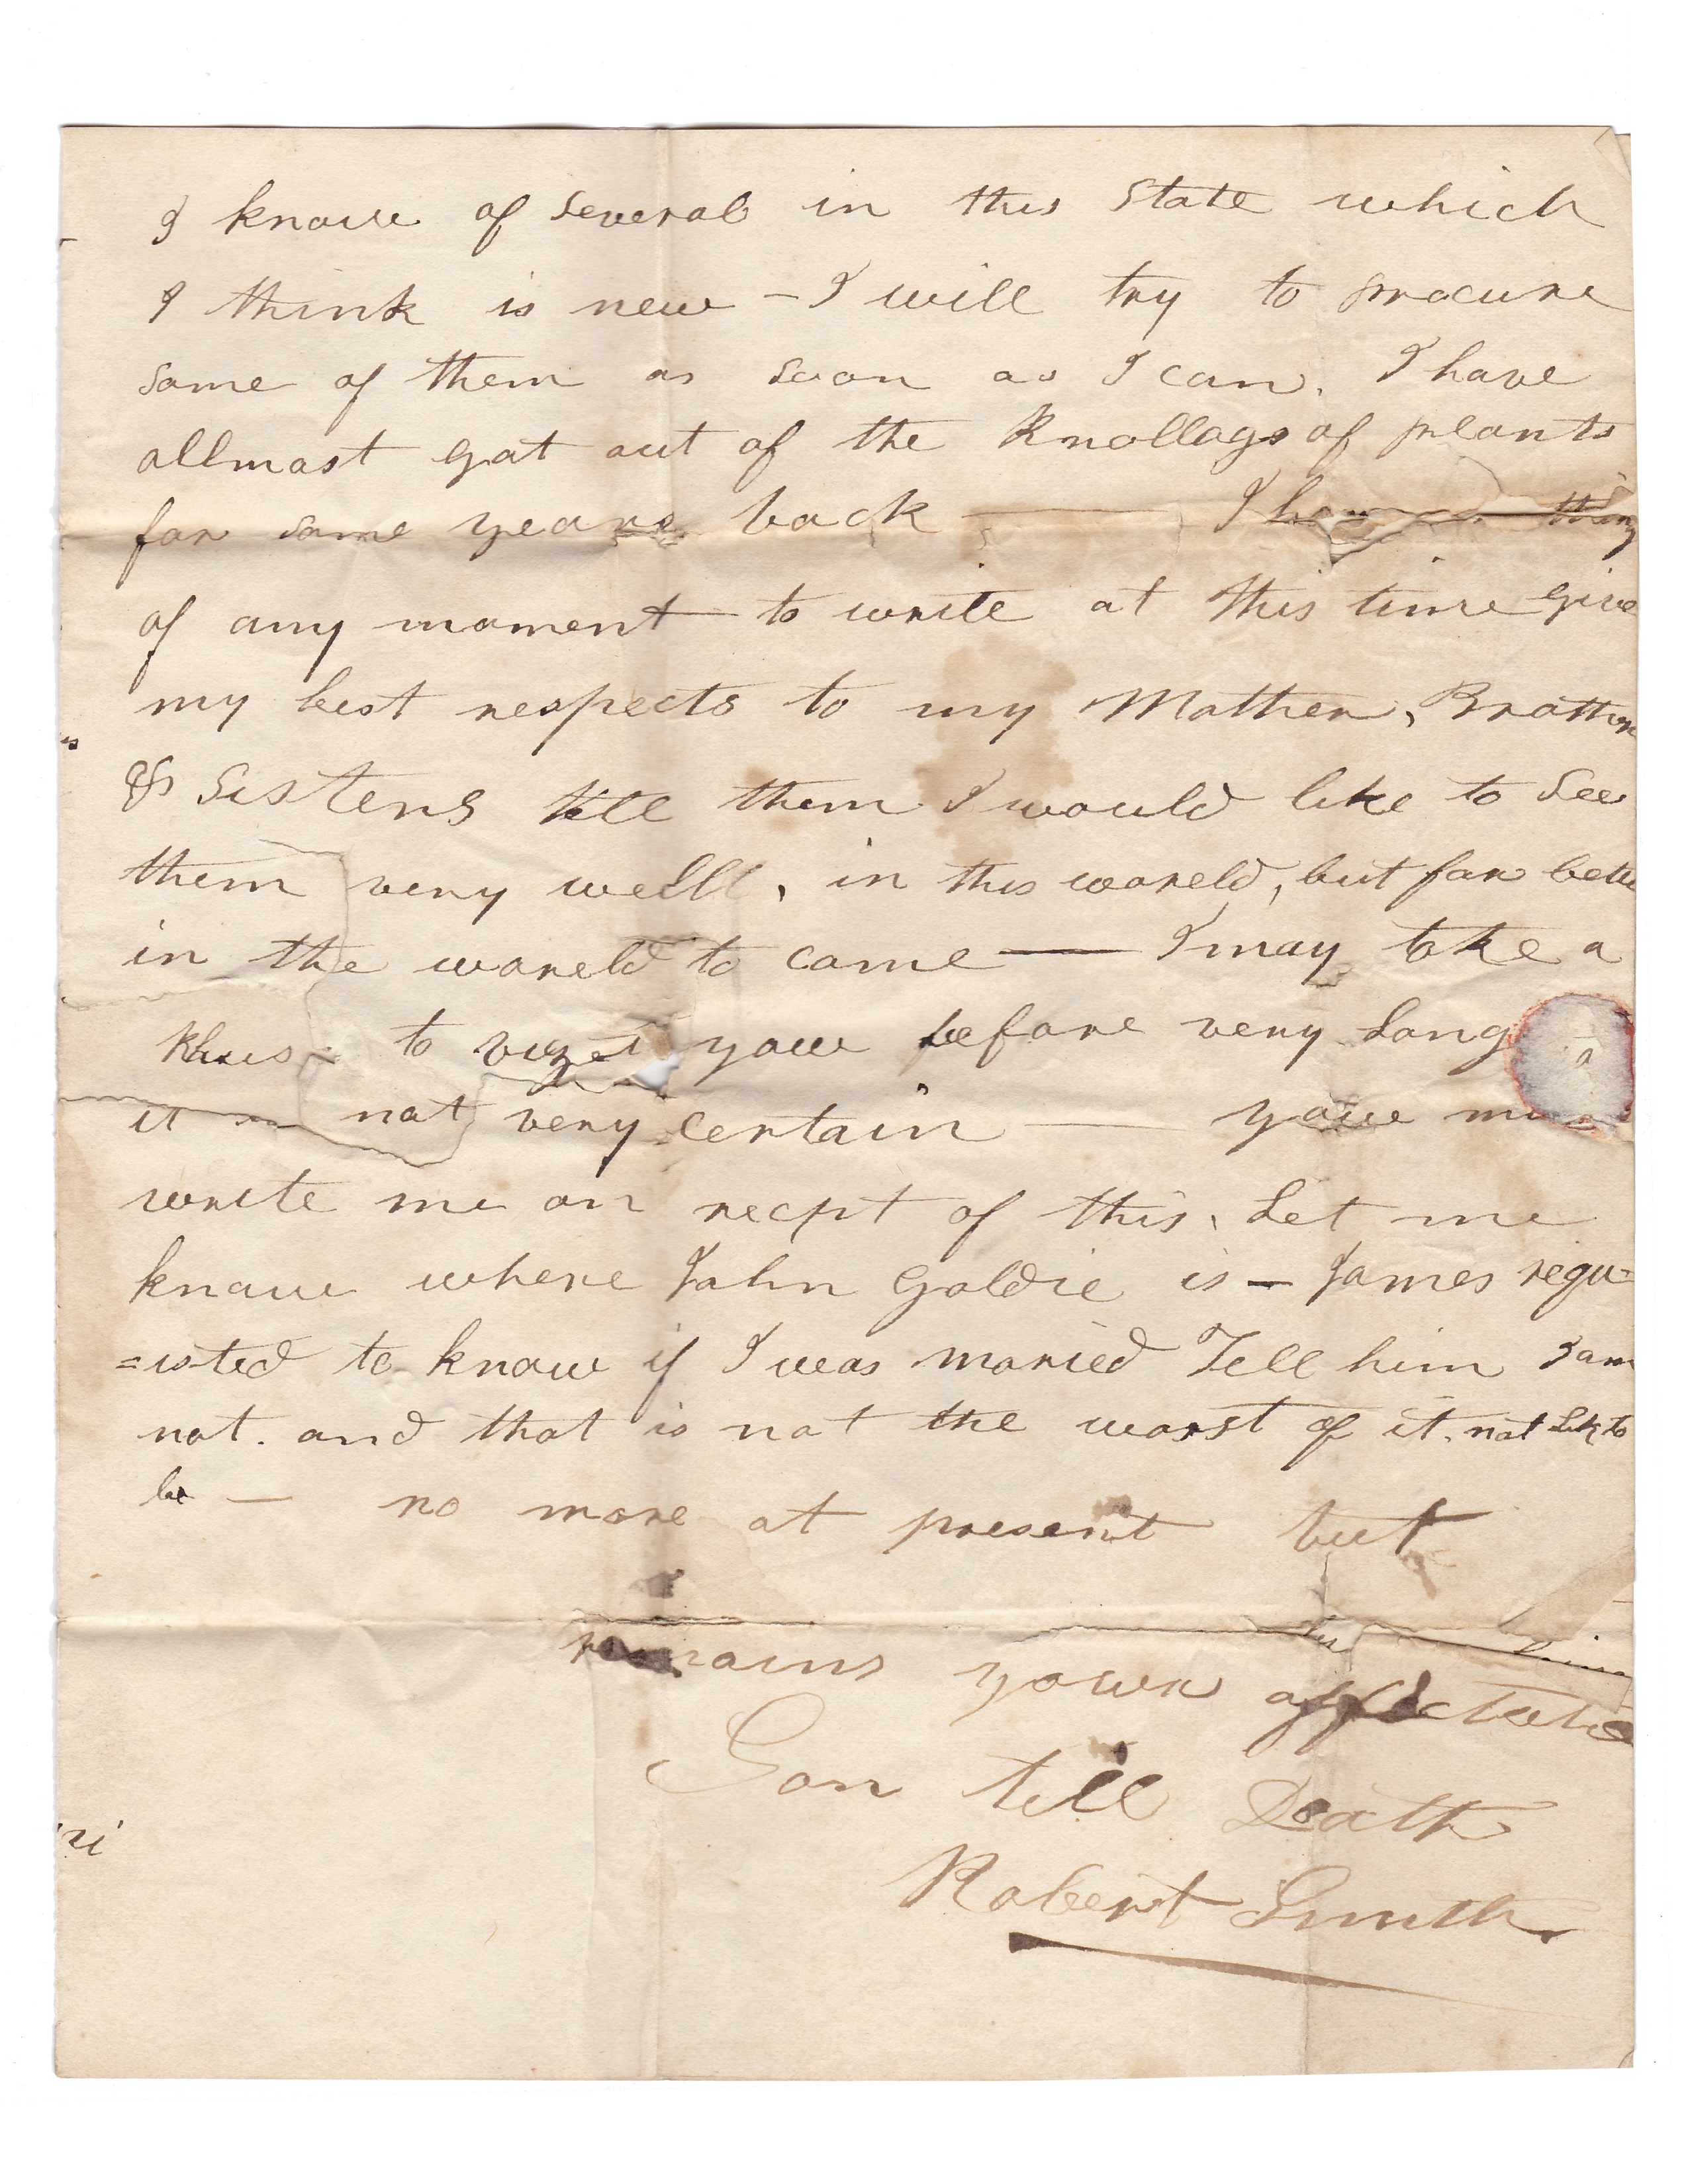 I know of Several in this State which
I think is new - I will try to procure
Some of them as Soon as I can. I have
allmost got out of the Knollags of plants
for Some years back — I thing
of any moment to write at this time Give
my best respects to my Mother, Brothers
& Sisters tell them I would like to See
them very well, in this woreld, but far better
in the woreld to come — I may take a
to you before very Long
it not very certain — youe
write me on recpt of this, Let me
know where John Goldie is — James requ=
=isted to know if I was maried Tell him I am
not. and that is not the worst of it. not Lik to
be — no more at present but
remains your
Son till Death
Robert Smith